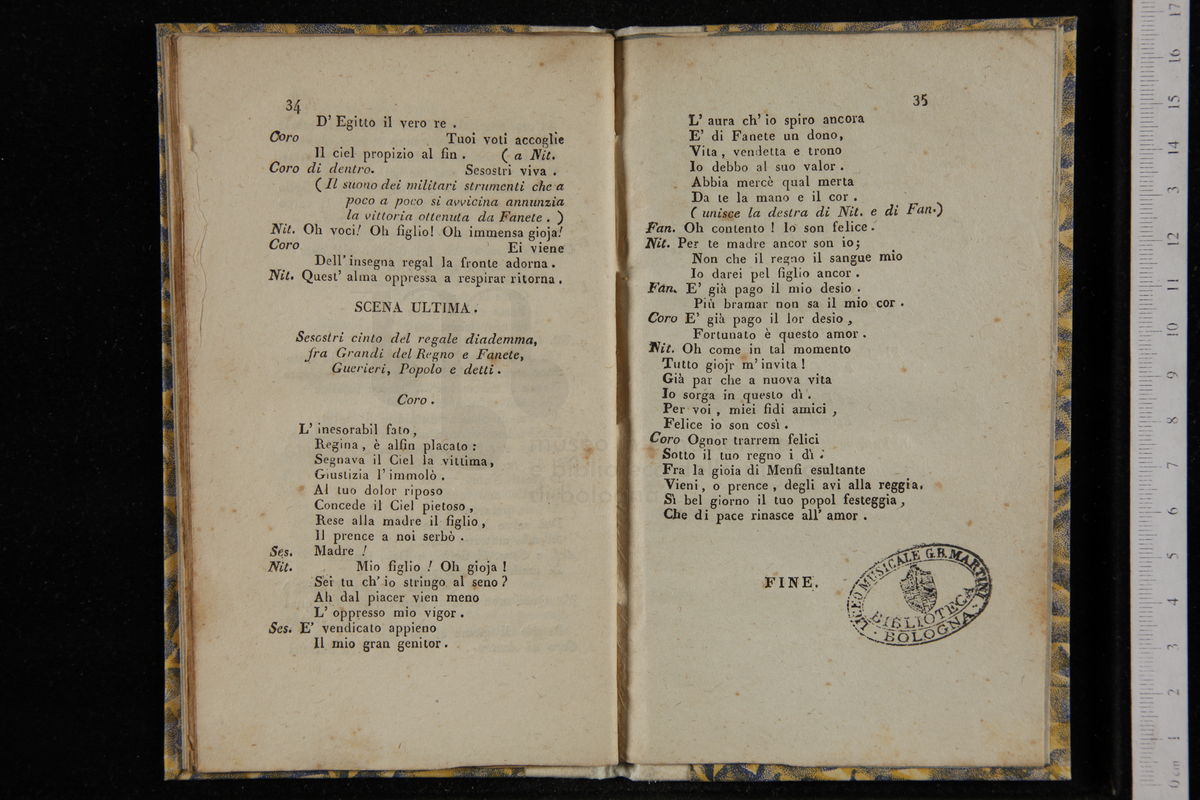 34
D' Egitto il vero re .
Coro Tuoi voti accoglie
Il ciel propizio al fin . ( a Nit.
Coro di dentro. Sesostri viva .
( Il suono dei militari strumenti che a
poco a poco si avvicina annunzia
la vittoria ottenuta da Fanete . )
Nit. Oh voci! Oh figlio! Oh immensa gioja!
Coro Ei viene
Dell' insegna regal la fronte adorna .
Nit. Quest' alma oppressa a respirar ritorna .
SCENA ULTIMA .
Sesostri cinto del regale diademma,
fra Grandi del Regno e Fanete,
Guerieri, Popolo e detti .
Coro .
L' inesorabil fato ,
Regina , è alfin placato :
Segnava il Ciel la vittima,
Giustizia l' immolò .
Al tuo dolor riposo
Concede il Ciel pietoso ,
Rese alla madre il figlio ,
Il prence a noi serbò .
Ses. Madre !
Nit. Mio figlio ! Oh gioja !
Sei tu ch' io stringo al seno ?
Ah dal piacer vien meno
L' oppresso mio vigor .
Ses. E' vendicato appieno
Il mio gran genitor .
35
L' aura ch' io spiro ancora
E' di Fanete un dono,
Vita , vendetta e trono
Io debbo al suo valor .
Abbia mercè qual merta
Da te la mano e il cor .
( unisce la destra di Nit. e di Fan.)
Fan. Oh contento ! Io son felice .
Nit. Per te madre ancor son io;
Non che il regno il sangue mio
Io darei pel figlio ancor .
Fan. E' già pago il mio desio .
Più bramar non sa il mio cor .
Coro E' già pago il lor desio ,
Fortunato è questo amor .
Nit. Oh come in tal momento
Tutto giojr m' invita !
Già par che a nuova vita
Io sorga in questo dì .
Per voi , miei fidi amici ,
Felice io son così .
Coro Ognor trarrem felici
Sotto il tuo regno i dì .
Fra la gioia di Menfi esultante
Vieni, o prence , degli avi alla reggia,
Sì bel giorno il tuo popol festeggia ,
Che di pace rinasce all' amor .
FINE.
LICEO MUSICALE G.B. MARTINI
BIBLIOTECA
BOLOGNA
museo
e biblio
di bologna
0 cm 1 2 3 4 5 6 7 8 9 10 11 12 13 14 15 16 17